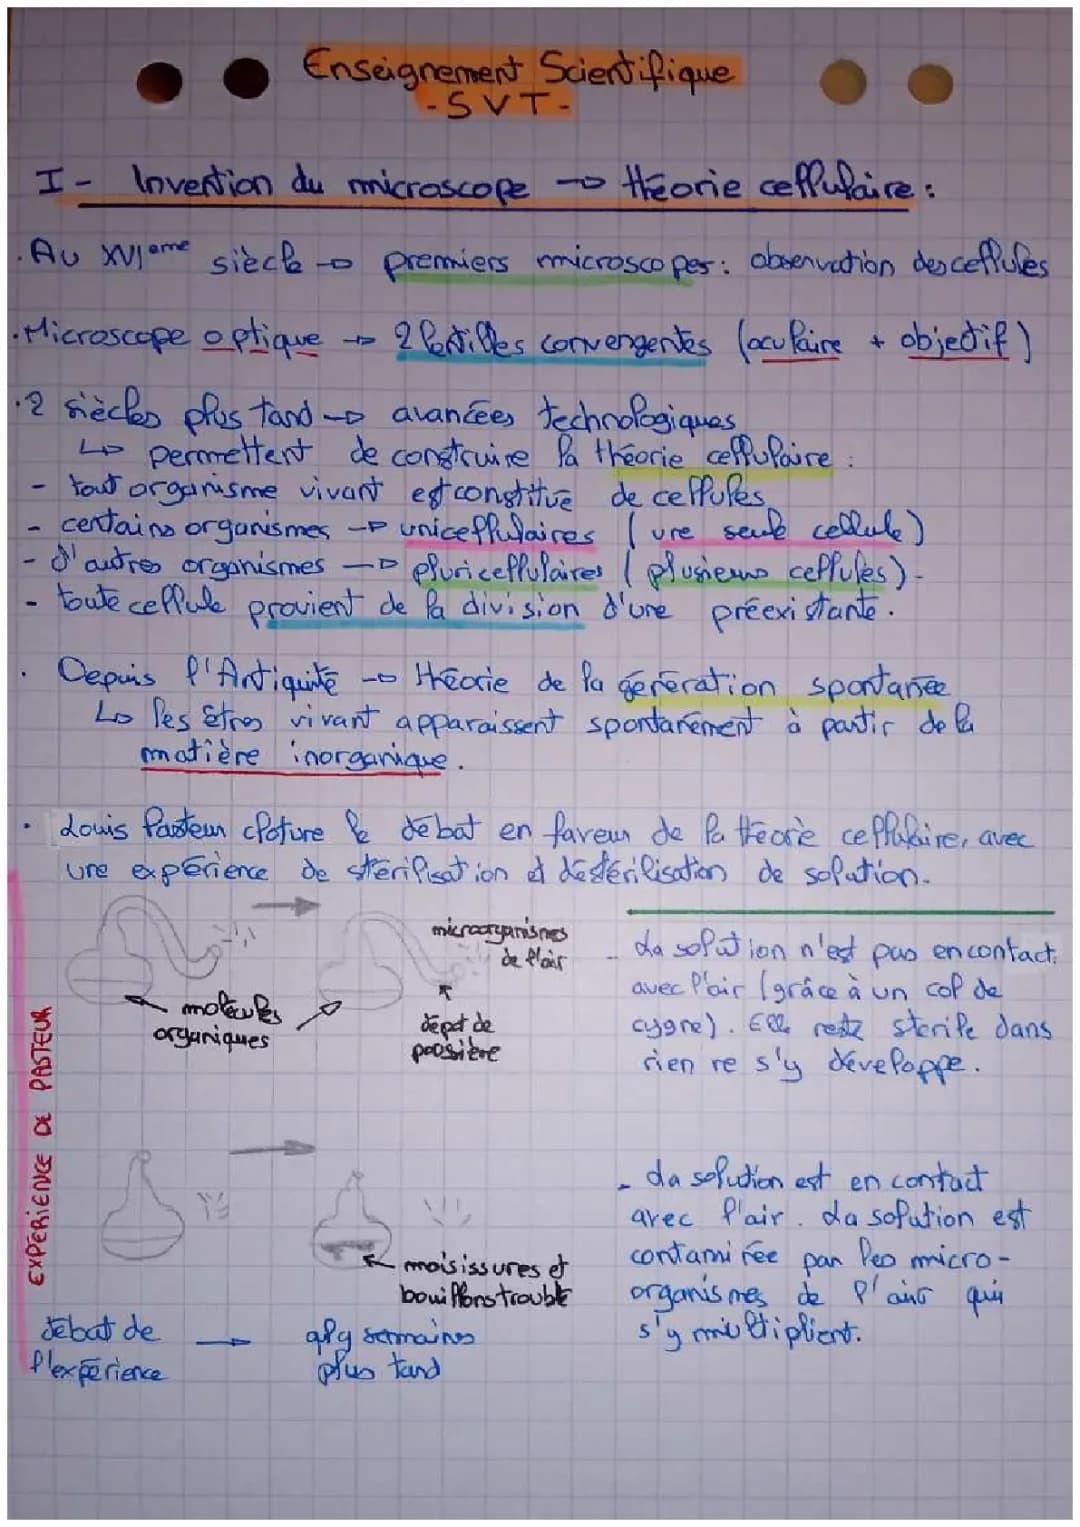 Enseignement Scientifique
- SVT -
I - Invention du microscope → théorie cellulaire :
. Au XVIème siècle → premiers microscopes : observation des cellules
. Microscope optique → 2 lentilles convergentes (oculaire + objectif)
. 2 siècles plus tard → avancées technologiques
↳ permettent de construire la théorie cellulaire :
- tout organisme vivant est constitué de cellules
- certains organismes → unicellulaires (une seule cellule)
- d'autres organismes → pluricellulaires (plusieurs cellules).
- toute cellule provient de la division d'une préexistante.
. Depuis l'Antiquité → théorie de la génération spontanée
↳ les êtres vivant apparaissent spontanément à partir de la
matière inorganique.
. Louis Pasteur cloture le débat en faveur de la théorie cellulaire, avec
une expérience de stérilisation et déstérilisation de solution.
EXPÉRIENCE DE PASTEUR
microorganismes
de l'air
molécules
organiques
dépot de
poussière
- La solution n'est pas en contact
avec l'air (grâce à un col de
cygne). Elle reste stérile dans
rien ne s'y développe.
moisissures et
bouillons trouble
- La solution est en contact
avec l'air. La solution est
contaminée par les micro-
organismes de l'air qui
s'y multiplient.
débat de
l'expérience
→
qlq semaines
plus tard